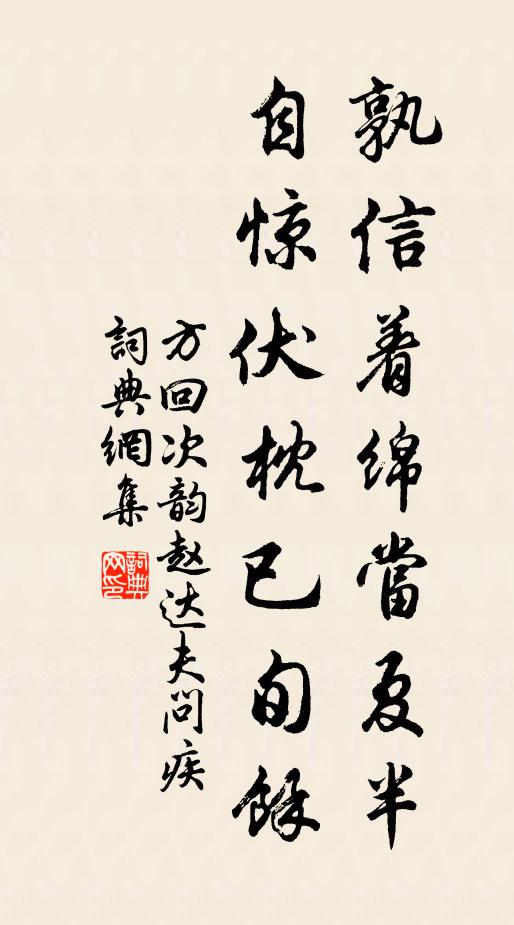 孰信着綿當夏半
自惊伏枕已旬餘
方回次韵赵达夫问疾
詞典網集
詞典網印